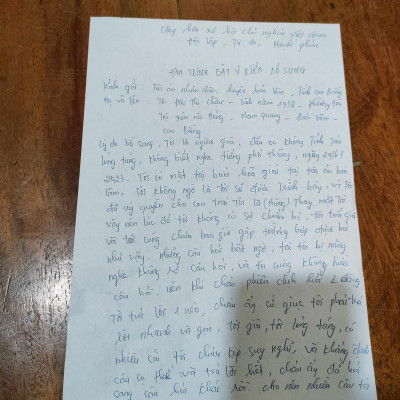 Cộng hòa xã hội chủ nghĩa Việt Nam
Độc lập - Tự do - Hạnh phúc
ĐƠN TRÌNH BÀY Ý KIẾN BỔ SUNG
Kính gửi: Tòa án nhân dân huyện bảo lâm, Tỉnh cao Bằng
Họ và tên: Thị - Sinh năm 1958 -
Thị trấn - Bảo Lâm -
Cao Bằng
Lý do bổ sung, Tôi là người già, đầu óc không tỉnh táo
lung tung, không biết nghe tiếng phổ thông, ngày
2023. Tôi có mặt tại buổi hòa giải tại tòa án bảo
lâm, Tôi không ngờ là tôi sẽ được trình bày, vì tôi
đã ủy quyền cho con trai tôi là thay mặt tôi
vậy nên lúc đó tôi không có sự chuẩn bị, tôi già
và tôi cũng chưa bao giờ gặp trường hợp
như vậy. những câu hỏi bất ngờ, tai tôi bị nặng
nghe không rõ câu hỏi, và tôi cũng không hiểu
câu hỏi. nên khi cháu phiên dịch hỏi 1 đằng
tôi trả lời 1 nẻo, cháu ấy cứ giục tôi phải trả
lời nhanh và gọn, tôi già, tôi lóng ngóng, có
nhiều cái tôi chưa kịp suy nghĩ, và không
câu cụ thể và trả lời hết, cháu ấy đã hỏi
sang câu hỏi khác rồi. cho nên nhiều câu tôi